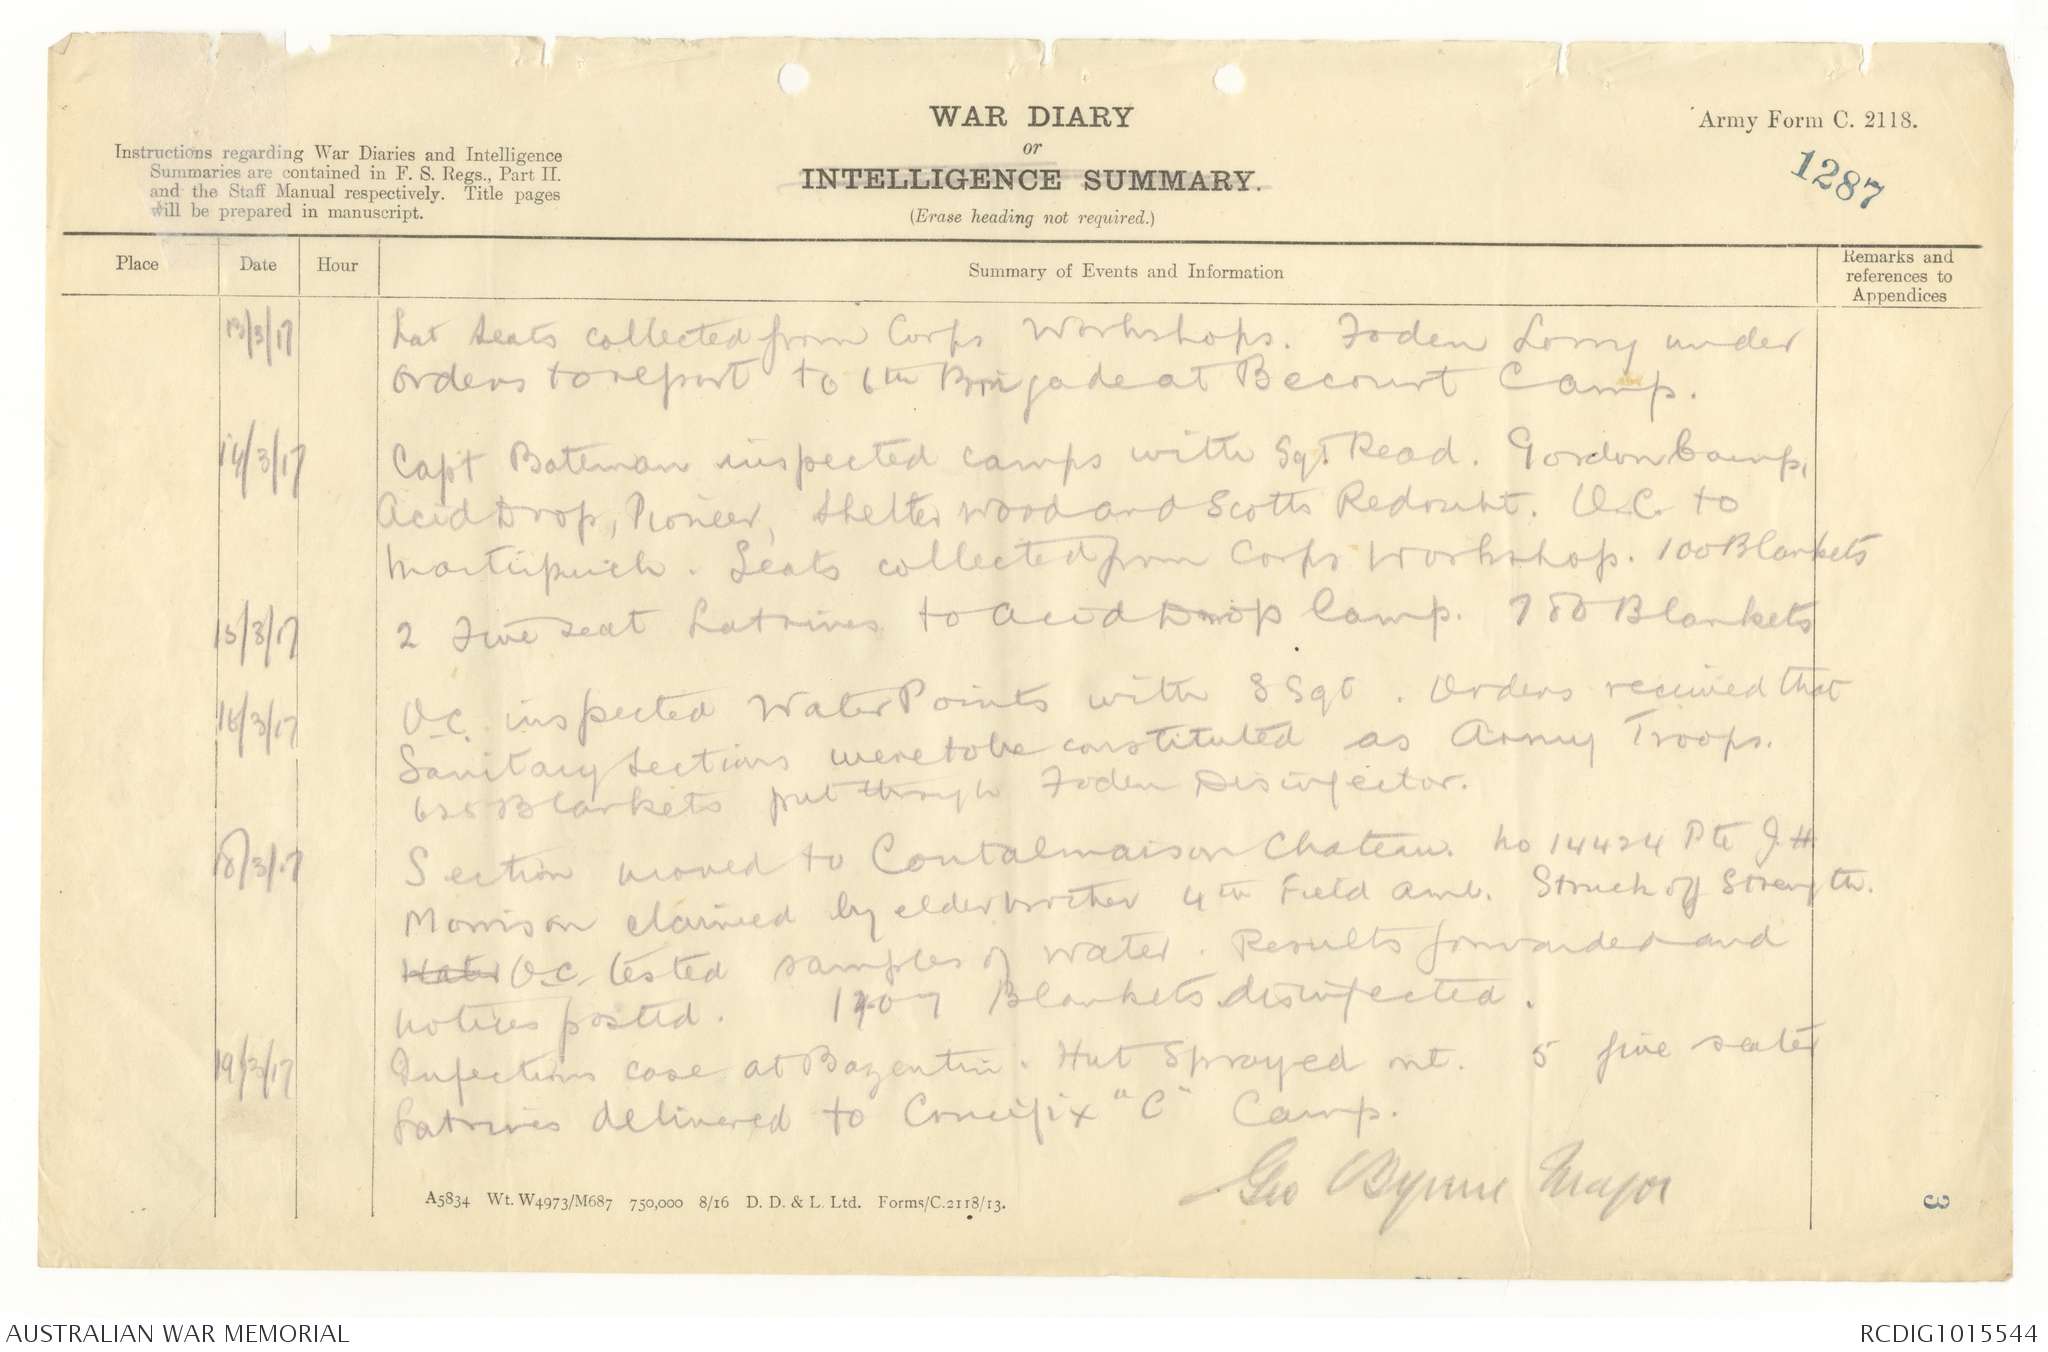 WAR DIARY
or
INTELLIGENCE SUMMARY.
(Erase heading not required.)
Army Form C. 2118.
1287
Instructions regarding War Diaries and Intelligence
Summaries are contained in F. S. Regs., Part II.
and the Staff Manual respectively. Title pages
will be prepared in manuscript.
Place Date Hour Summary of Events and Information Remarks and
references to
Appendices
13/3/17 Lat Seats collected from Corps Workshops. Foden Lorry under
orders to report to 6th Brigade at Becourt Camp.
14/3/17 Capt Bateman inspected camps with Sgt Read. Gordon Camp,
Acid Drop, Pioneer, Shelter Wood and Scotts Redoubt. O.C. to
Martinpuich. Seats collected from Corps Workshop. 100 Blankets
15/3/17 2 Five seat Latrines to Acid Drop Camp. 780 Blankets
16/3/17 O.C. inspected Water Points with S Sgt. Orders received that
Sanitary Sections were to be constituted as Army Troops.
625 Blankets put through Foden Disinfector.
18/3/17 Section moved to Contalmaison Chateau. No 14424 Pte J.H.
Morrison claimed by elder brother 4th Field Amb. Struck off Strength.
Water O.C. tested samples of water. Results forwarded and
notices posted. 1407 Blankets disinfected.
19/3/17 Infectious case at Bazentin. Hut Sprayed out. 5 five seater
Latrines delivered to Crucifix "C" Camp.
Geo Byrne Major
A5834 Wt. W4973/M687 750,000 8/16 D. D. & L. Ltd. Forms/C.2118/13.
3
AUSTRALIAN WAR MEMORIAL
RCDIG1015544